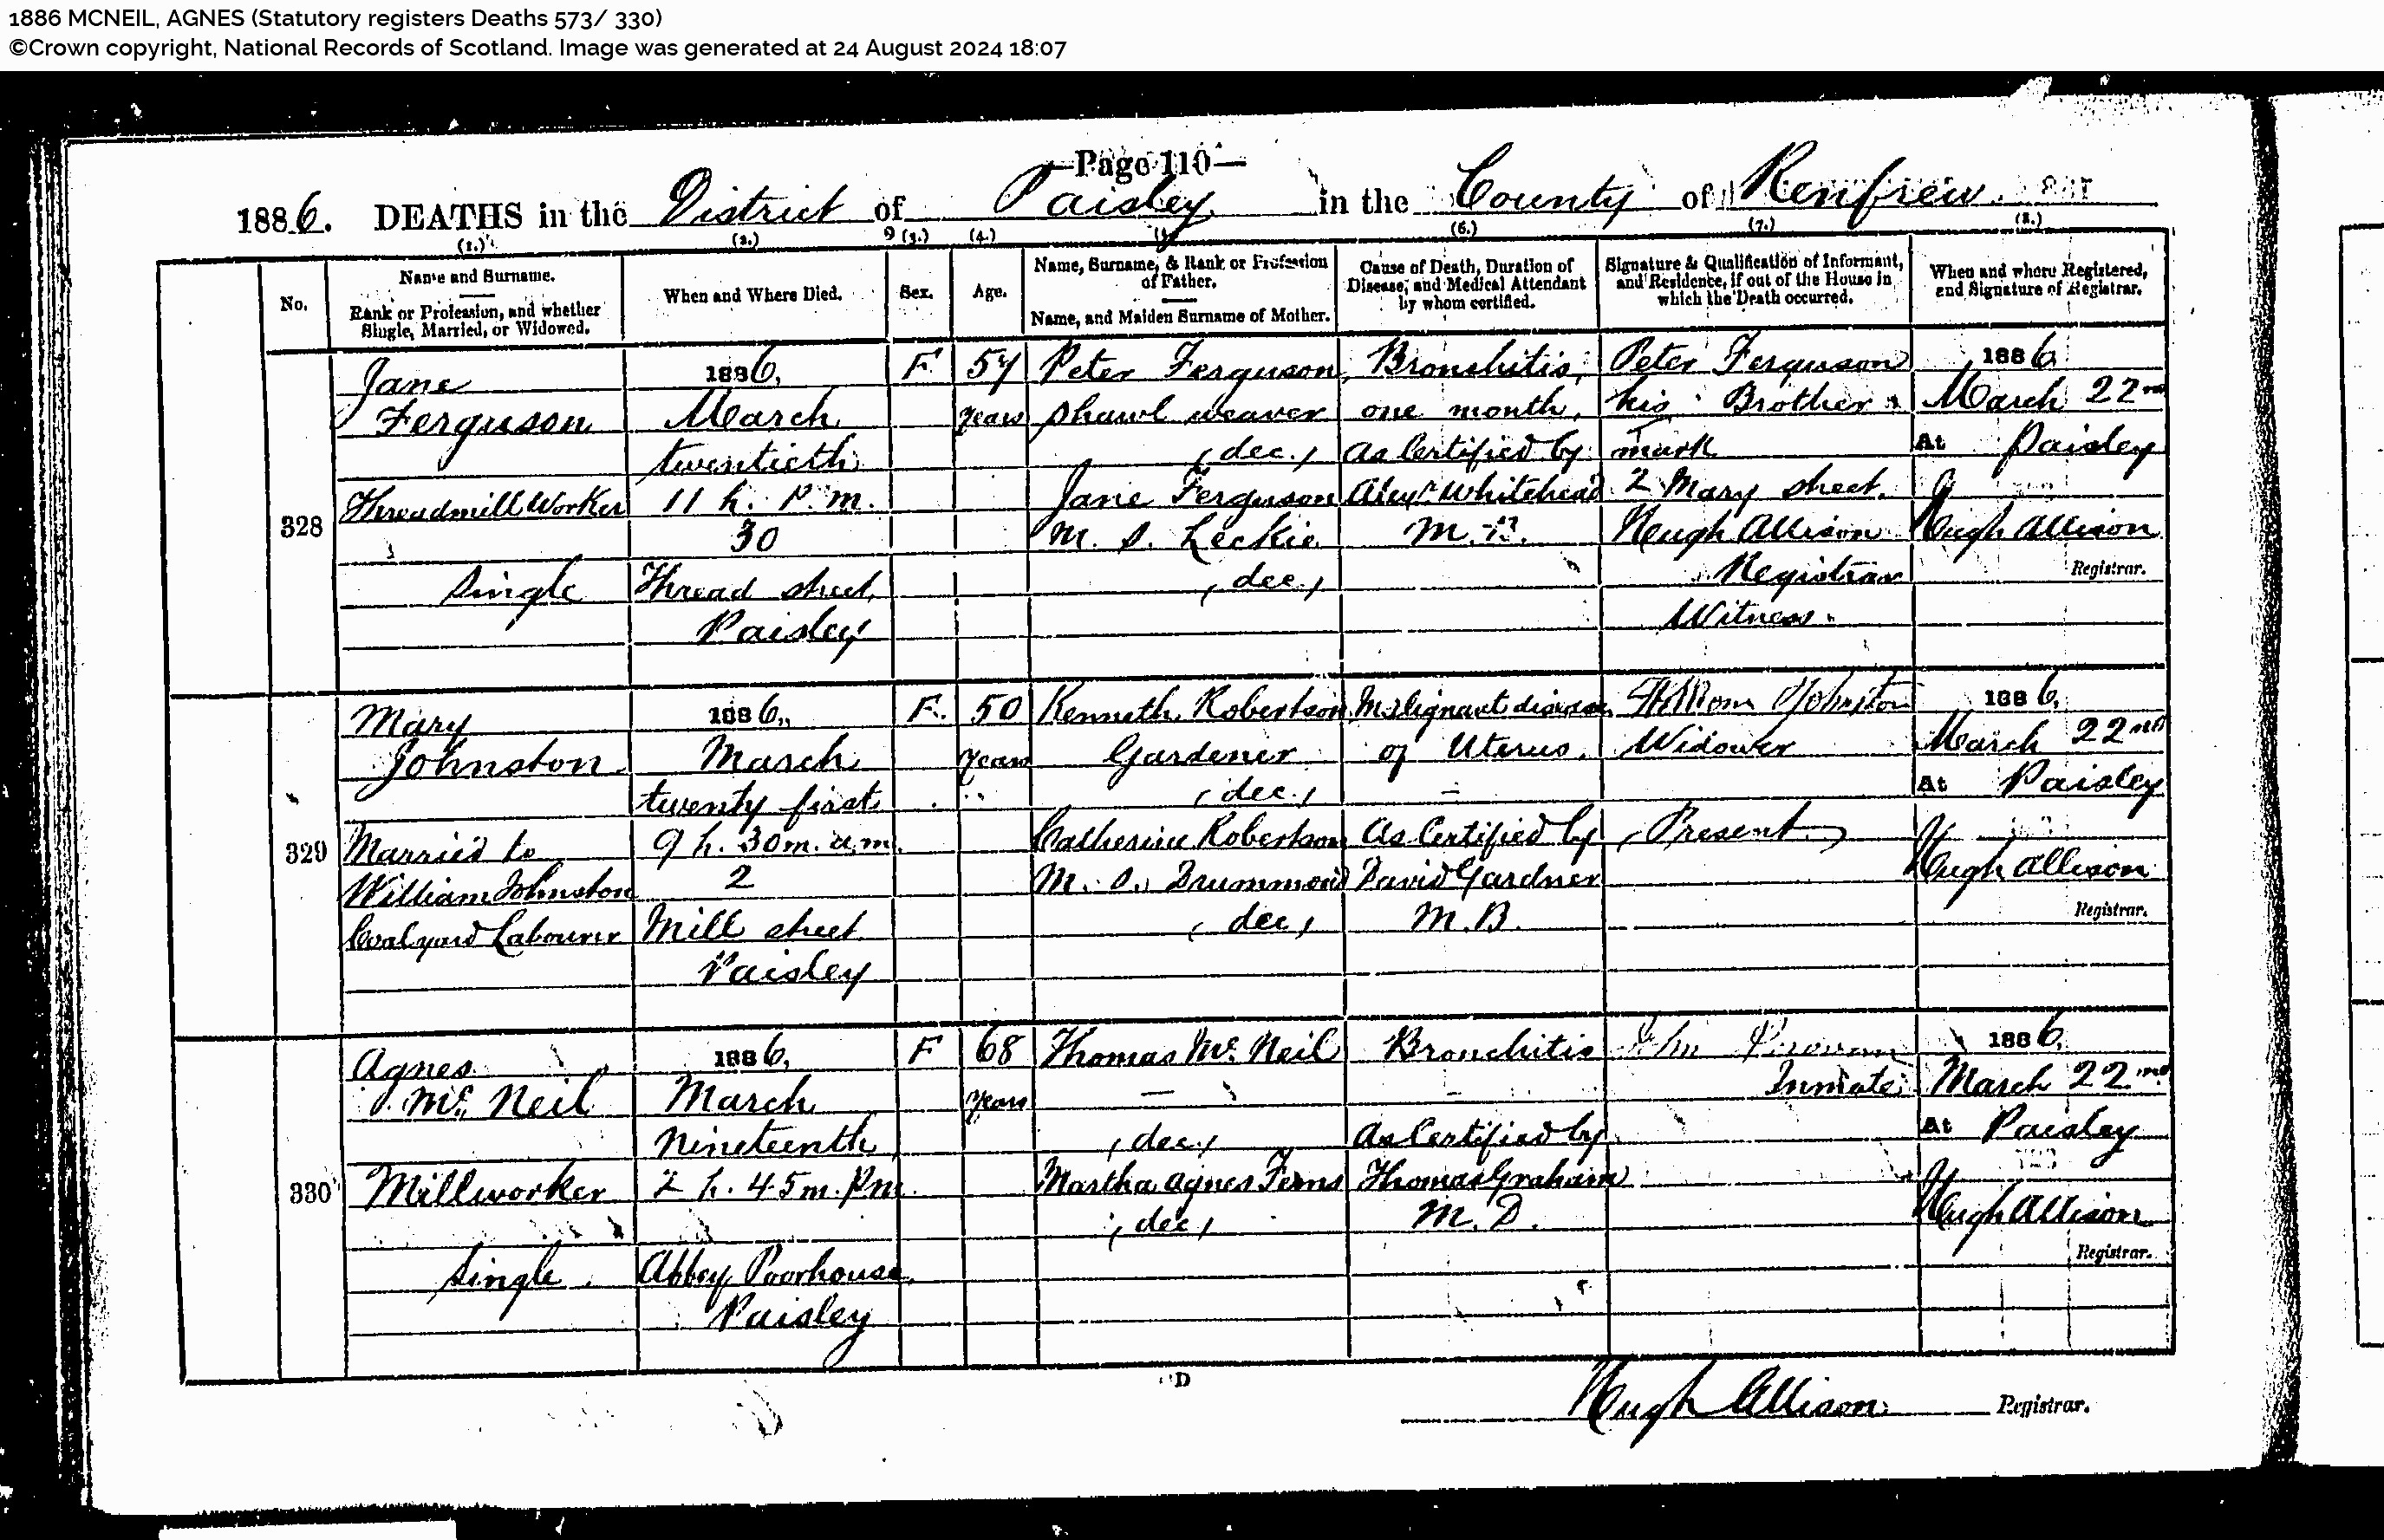 1886 MCNEIL, AGNES (Statutory registers Deaths 573/ 330)
©Crown copyright, National Records of Scotland. Image was generated at 24 August 2024 18:07
—Page 110—
1886. DEATHS in the District of Paisley in the County of Renfrew
(1.) (2.) (3.) (4.) (6.) (7.) (8.)
No.
Name and Surname.
Rank or Profession, and whether
Single, Married, or Widowed.
When and Where Died.
Sex.
Age.
Name, Surname, & Rank or Profession
of Father.
Name, and Maiden Surname of Mother.
Cause of Death, Duration of
Disease, and Medical Attendant
by whom certified.
Signature & Qualification of Informant,
and Residence, if out of the House in
which the Death occurred.
When and where Registered,
and Signature of Registrar.
328
Jane
Ferguson
Threadmill Worker
Single
1886,
March
twentieth
11 h. P. m.
30
Thread street,
Paisley
F.
57
years
Peter Ferguson,
Shawl weaver
(dec.)
Jane Ferguson
M. S. Leckie
(dec.)
Bronchitis,
one month,
As Certified by
Alexr Whitehead
Peter Ferguson
his Brother
mark
2 Mary street.
Hugh Allison
Registrar
Witness.
1886
March 22nd
At Paisley
Hugh Allison
Registrar.
329
Mary
Johnston
Married to
William Johnston
Coalyard Labourer
1886,
March
twenty first
9 h. 30 m. a.m.
2
Mill street
Paisley
F.
50
years
Kenneth Robertson
Gardener
(dec.)
Catherine Robertson
M. S. Drummond
(dec)
Malignant disease
of Uterus.
—
As Certified by
David Gardner
M.B.
William Johnston
Widower
(Present)
1886,
March 22nd
At Paisley
Hugh Allison
Registrar.
330
Agnes
Mc Neil
Millworker
Single.
1886,
March
Nineteenth
2 h. 45 m. Pm.
Abbey Poorhouse
Paisley
F
68
years
Thomas Mc Neil
—
(dec.)
Martha Agnes Ferns
(dec)
Bronchitis
—
As Certified by
Thomas Graham
M. D.
Inmate
1886,
March 22nd
At Paisley
Hugh Allison
Registrar.
D
Hugh Allison Registrar.